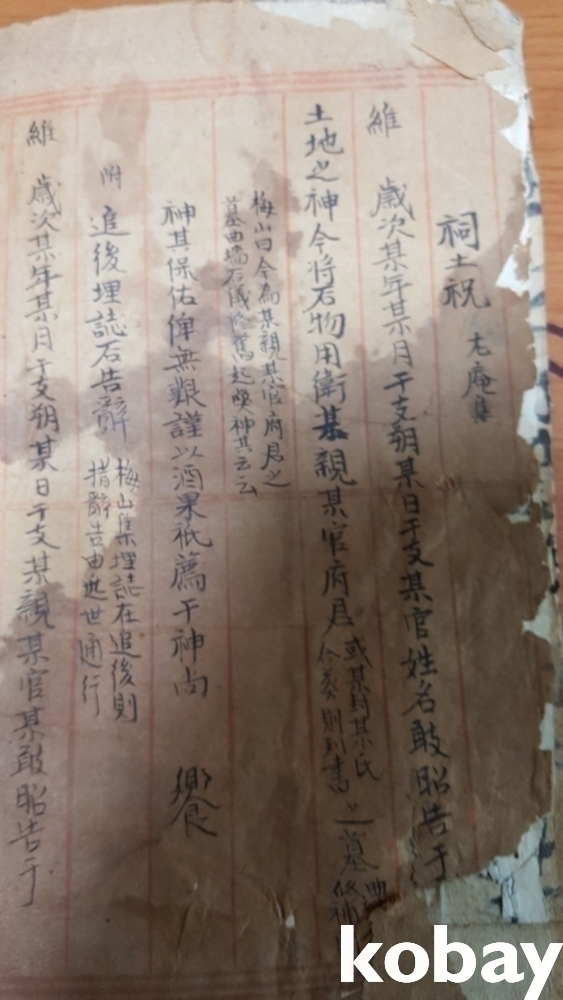 祠土祝 尤庵集
維
歲次某年某月干支朔某日干支某官姓名敢昭告于
土地之神今將石物用衛某親某官府君 或某封某氏 合葬則列書 之墓 修補
梅山曰今為某親某官府君之
墓曲墻石儀修 起 神其云云
神其保佑俾無艱謹以酒果祗薦于神尚
饗
附 追後埋誌石告辭 梅山集埋誌在追後則
措辭告由 世通行
維
歲次某年某月干支朔某日干支某親某官某敢昭告于
kobay